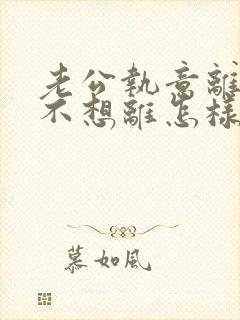 老公執意離
不想離怎樣
慕如風